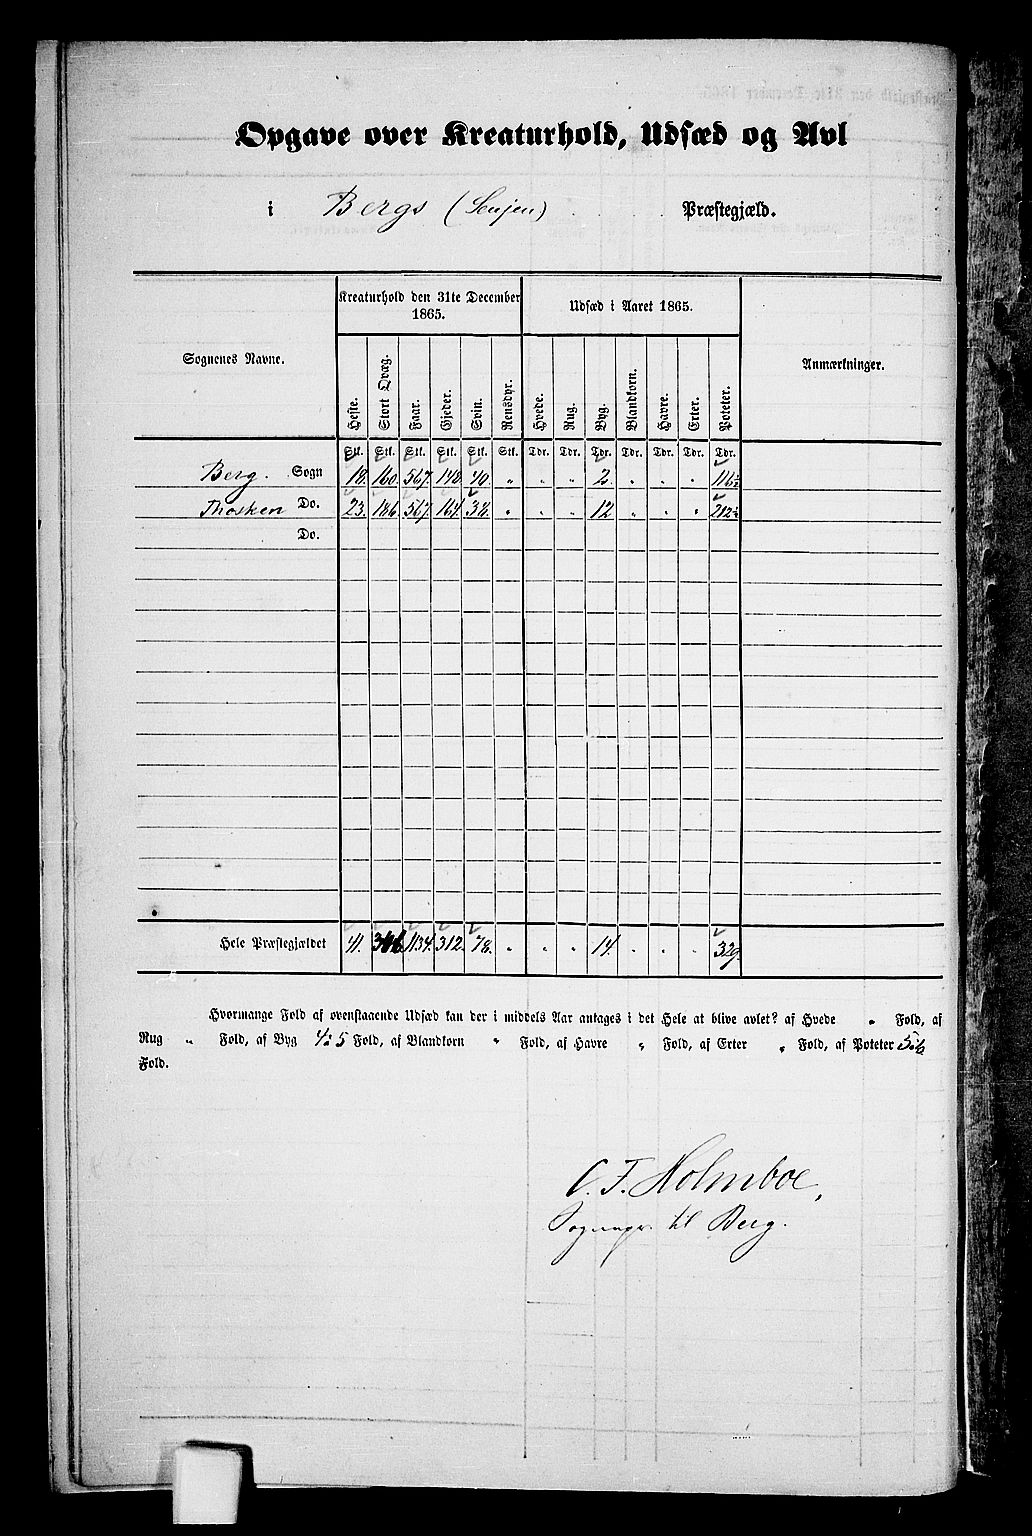 Opgave over Kreaturhold, Udsæd og Avl
i Bergs (Senjen) Præstegjæld.
Sognenes Navne. Kreaturhold den 31te December 1865. Udsæd i Aaret 1865. Anmærkninger.
Heste. Stort Qvæg. Faar. Gjeder. Svin. Rensdyr. Hvede. Rug. Byg. Blandkorn. Havre. Erter. Poteter.
Stk. Stk. Stk. Stk. Stk. Stk. Tdr. Tdr. Tdr. Tdr. Tdr. Tdr. Tdr.
Berg. Sogn 18. 160. 567. 148. 40. " " " 2. " " " 116½
Thosken Do. 23. 186. 567. 164. 38. " " " 12 " " " 212½
Do.
Hele Præstegjældet 41. 346 1134. 312. 78. " " " 14. " " " 329.
Hvormange Fold af ovenstaaende Udsæd kan der i middels Aar antages i det Hele at blive avlet? af Hvede " Fold, af
Rug " Fold, af Byg 4 à 5 Fold, af Blandkorn " Fold, af Havre " Fold, af Erter " Fold, af Poteter 5 à 6
Fold.
C. F. Holmboe,
til Berg.